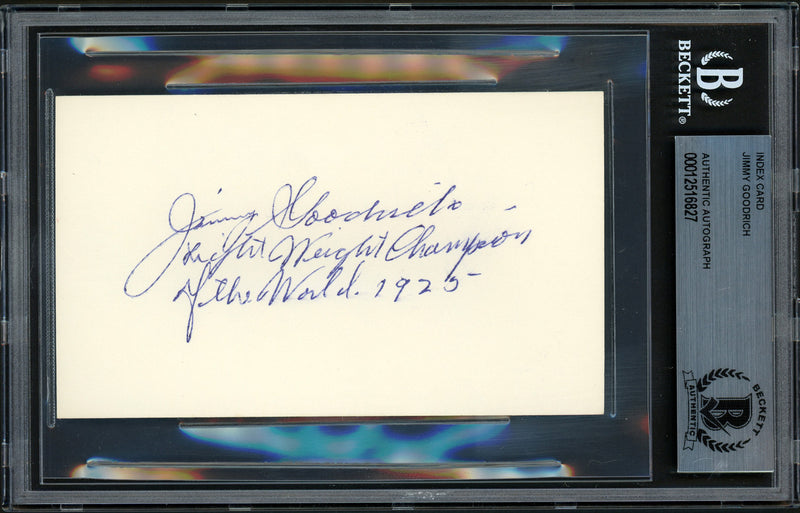 Jimmy Goodrich
Light Weight Champion
of the World. 1925
B
BECKETT®
INDEX CARD
JIMMY GOODRICH
AUTHENTIC AUTOGRAPH
00012516827
BECKETT
B
AUTHENTIC